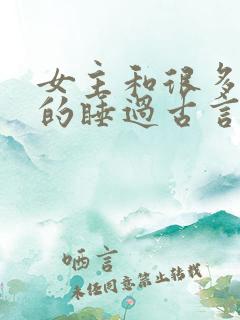 女主和很多
的睡过古言
哂言
未经同意禁止转载